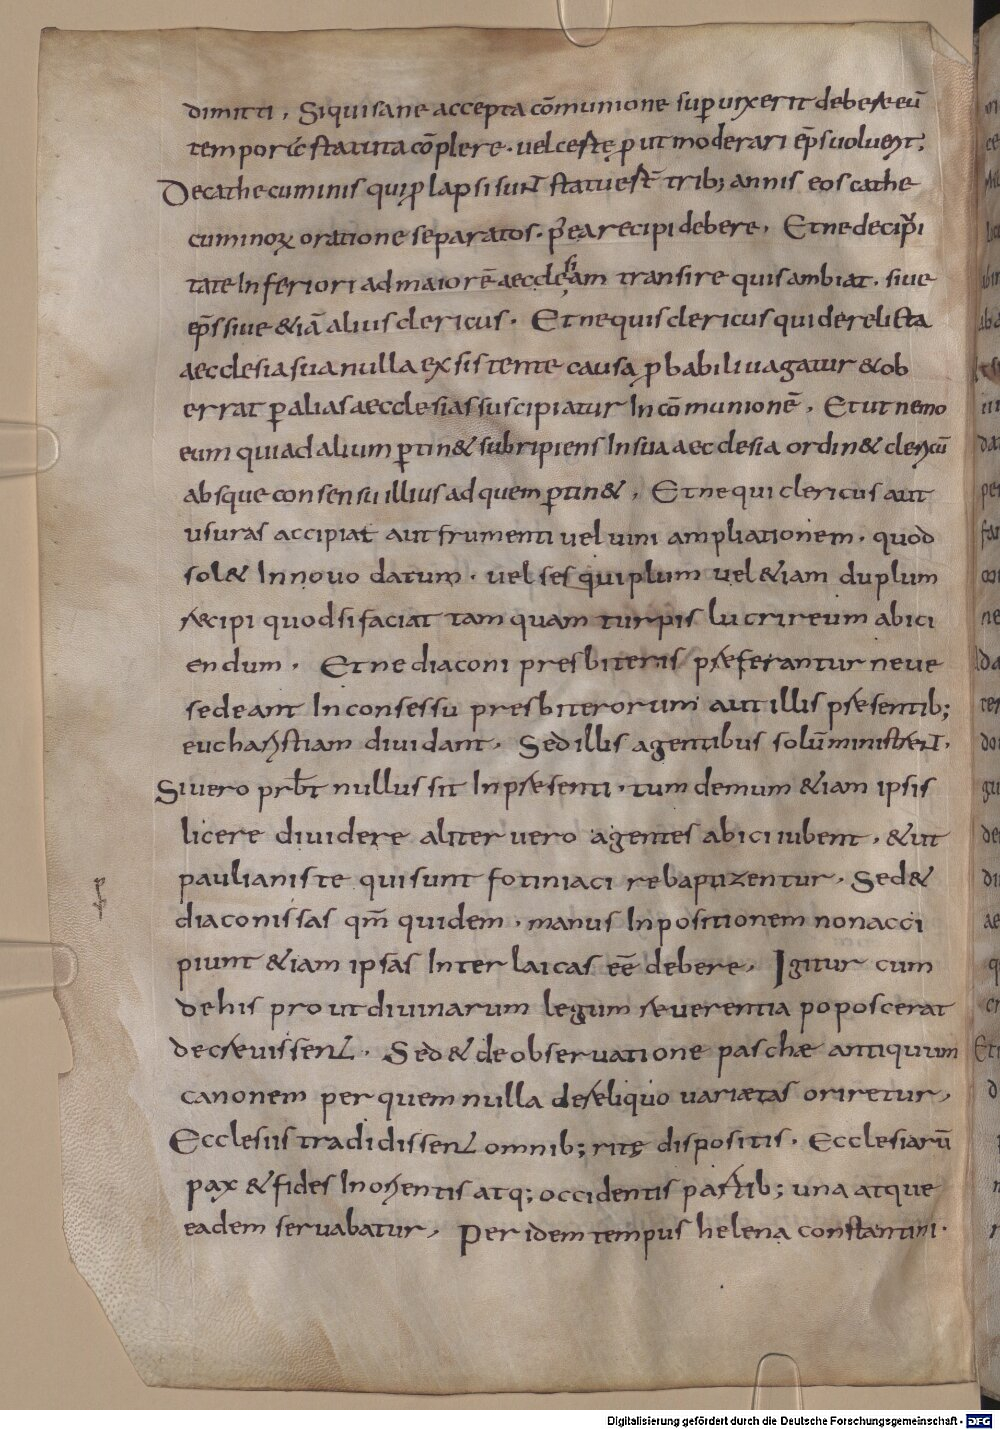 dimitti, Siqui sane accepta cōmunione sup uixerit debere eū
temporis statuta cōplere. uel certę ꝓut moderari ep̄s uoluerit;
De cathecuminis qui ꝓlapsi sunt statuerт̄ trib; annis eos cathe
cuminoꝝ oratione separatos. p̄ ea recipi debere, Et ne de ciui
tate Inferiori ad maiorē aeccłesiam transire quis ambiat. siue
ep̄s siue &iā alius clericus. Et ne quis clericus qui derelicta
aecclesia sua nulla exsistente causa ꝓbabili uagatur & ob
errat ꝑ alias aecclesias suscipiatur In cōmunionē, Et ut nemo
eum qui ad alium ꝑtin& subripiens In sua aecclesia ordin& clericū
absque consensu illius ad quem ꝑtin&, Et ne qui clericus aut
usuras accipiat aut frumenti uel uini ampliationem. quod
sol& In nouo datum. uel sesquiplum uel &iam duplum
recipi quod si faciat tamquam turpis lucri reum abici
endum. Et ne diaconi presbiteris præferantur neue
sedeant In consessu presbiterorum aut illis præsentib;
eucharistiam diuidant. Sed illis agentibus solū ministrent.
Si uero prb̄t nullus sit In præsenti. tum demum &iam ipsis
licere diuidere aliter uero agentes abici iubent. & ut
paulianiste qui sunt fotiniaci rebaptizentur. Sed &
diaconissas qm̄ quidem. manus Inpositionem non acci
piunt &iam ipsas Inter laicas eē debere. Igitur cum
de his prout diuinarum legum reuerentia poposcerat
decreuissent. Sed & de obseruatione paschæ antiquum
canonem per quem nulla de reliquo uariætas oriretur,
Ecclesiis tradidissent omnib; ritę dispositis. Ecclesiarū
pax & fides In orientis atq; occidentis partib; una atque
eadem seruabatur, Per idem tempus helena constantini.
Digitalisierung gefördert durch die Deutsche Forschungsgemeinschaft - DFG